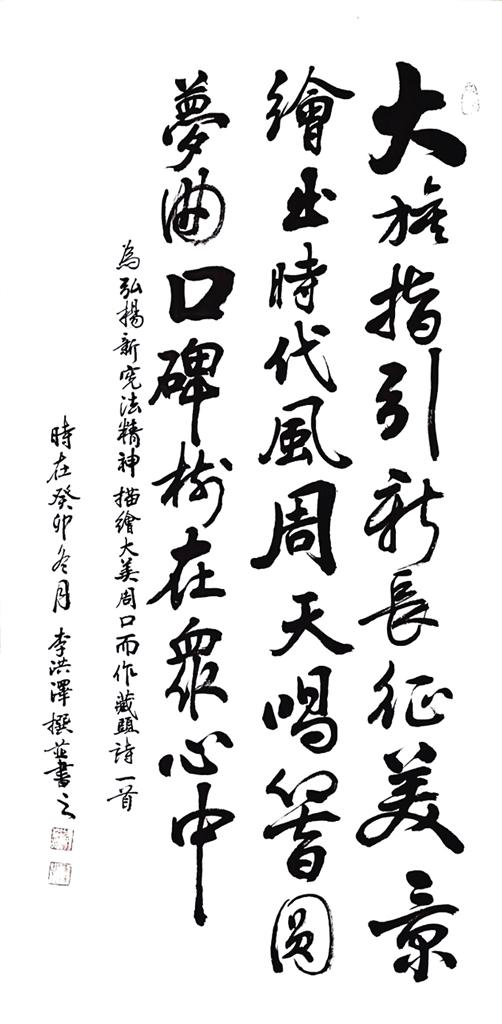 大旗指引新長征美景
繪出時代風周天唱響圓
夢曲口碑樹在眾心中
為弘揚新宪法精神描繪大美周口而作藏頭詩一首
時在癸卯冬月 李洪澤撰並書之